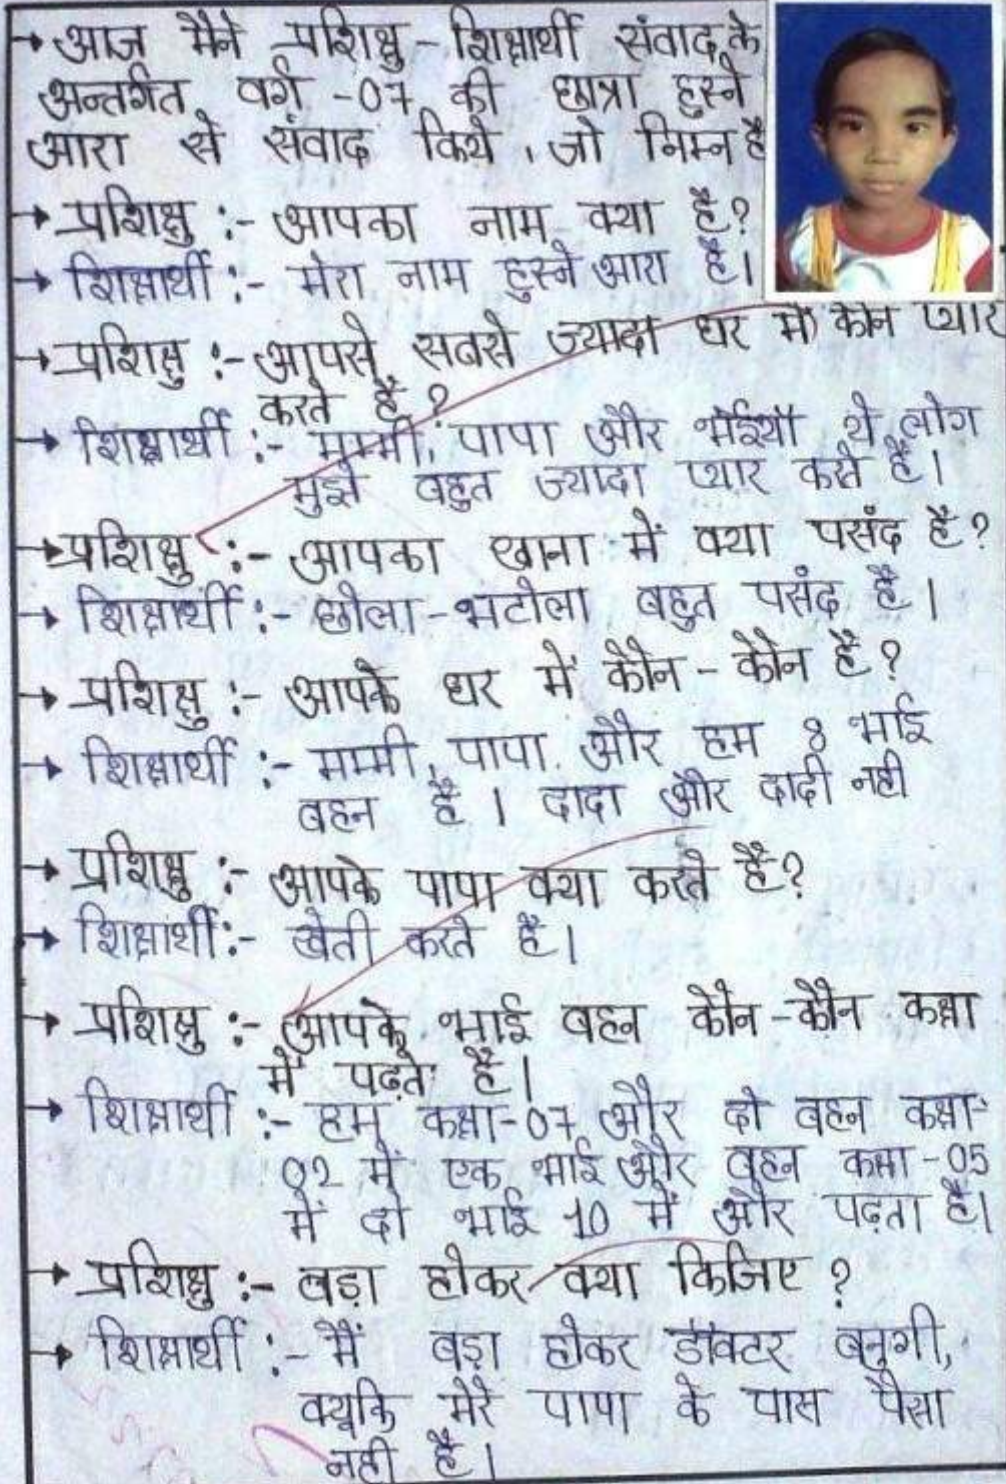 → आज मैने प्रशिक्षु - शिक्षार्थी संवाद के
अन्तर्गत वर्ग -07 की छात्रा हुस्ने
आरा से संवाद किये, जो निम्न है
→ प्रशिक्षु :- आपका नाम क्या है?
→ शिक्षार्थी :- मेरा नाम हुस्ने आरा है।
→ प्रशिक्षु :- आपसे सबसे ज्यादा घर में कौन प्यार
करते हैं?
→ शिक्षार्थी :- मम्मी, पापा और भईया ये लोग
मुझे बहुत ज्यादा प्यार करते हैं।
→ प्रशिक्षु :- आपका खाना में क्या पसंद है?
→ शिक्षार्थी :- छोला - भटोला बहुत पसंद है।
→ प्रशिक्षु :- आपके घर में कौन - कौन है?
→ शिक्षार्थी :- मम्मी, पापा. और हम 8 भाई
बहन है। दादा और दादी नही
→ प्रशिक्षु :- आपके पापा क्या करते हैं?
→ शिक्षार्थी :- खेती करते हैं।
→ प्रशिक्षु :- आपके भाई बहन कौन - कौन कक्षा
में पढ़ते हैं।
→ शिक्षार्थी :- हम कक्षा-07 और दो बहन कक्षा-
02 में एक भाई और बहन कक्षा -05
में दो भाई 10 में और पढ़ता है।
→ प्रशिक्षु :- बड़ा होकर क्या किजिए ?
→ शिक्षार्थी :- मैं बड़ा होकर डॉक्टर बनुगी,
क्यूकि मेरे पापा के पास पैसा
नही है।